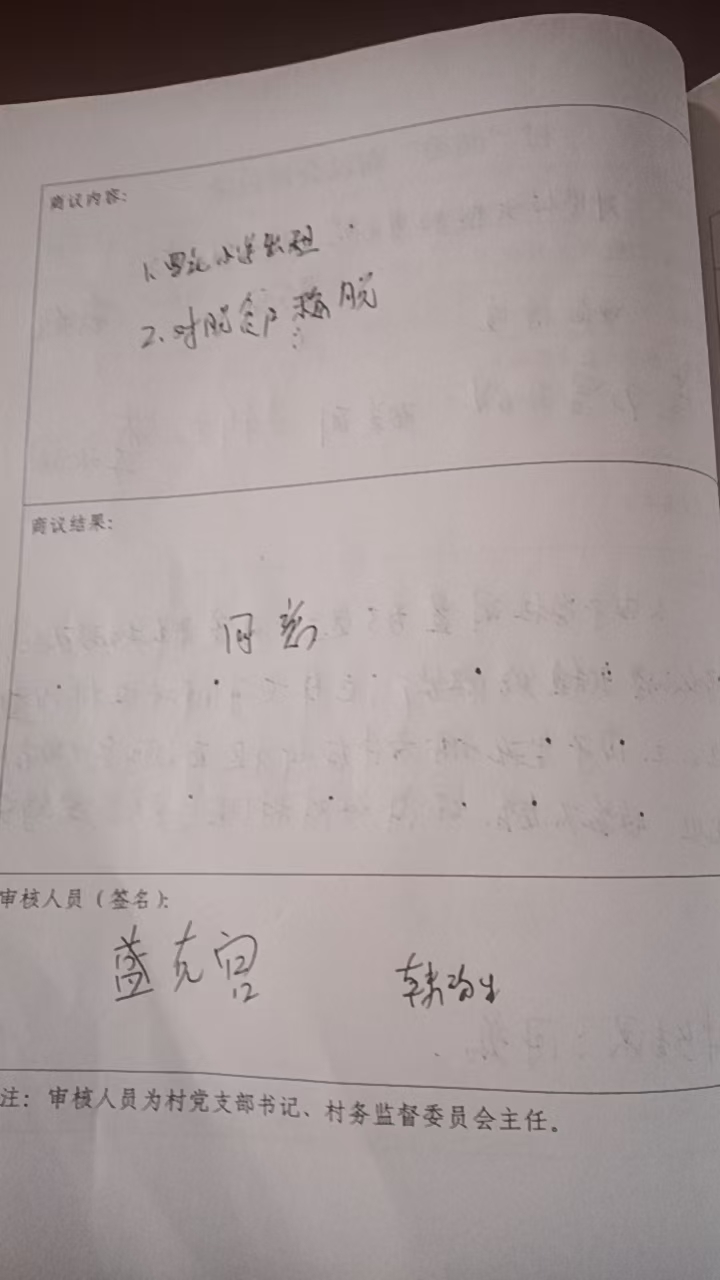 商议内容:
1、小学出租
2、对脱户脱
商议结果:
同意
审核人员(签名):
盖克宫
韩
注: 审核人员为村党支部书记、村务监督委员会主任。